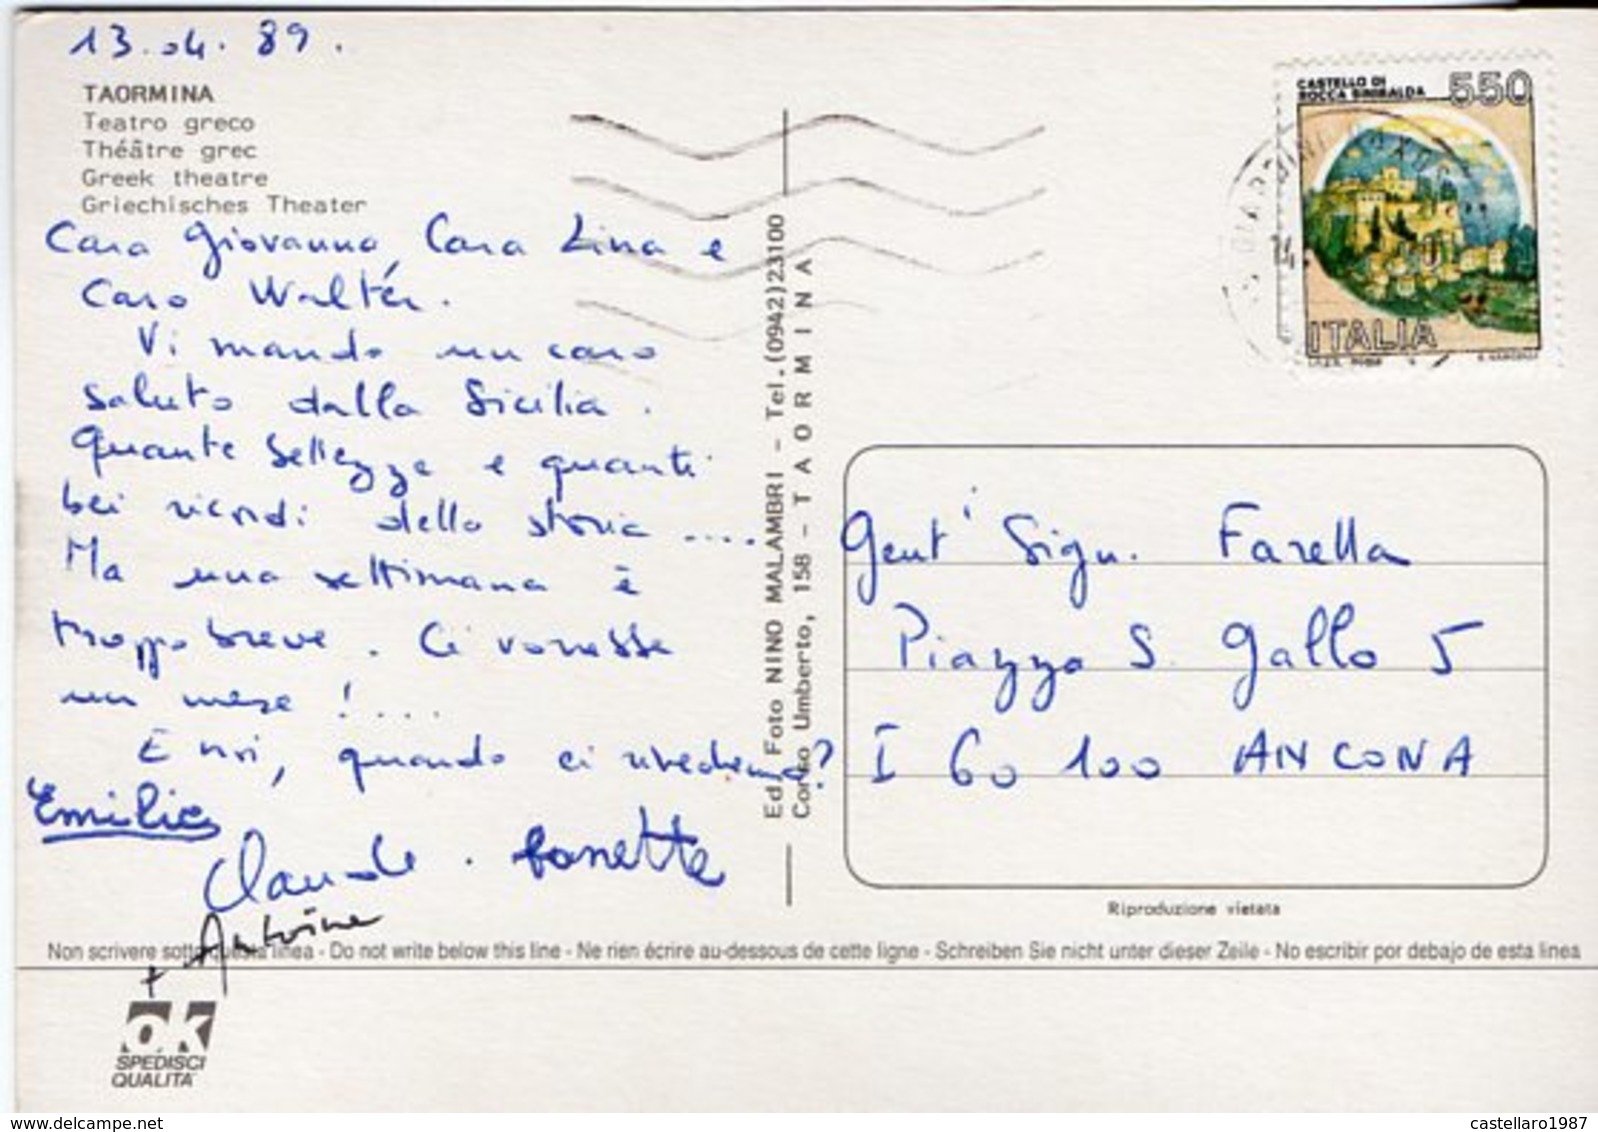 13.04.89.
TAORMINA
Teatro greco
Théâtre grec
Greek theatre
Griechisches Theater
Cara Giovanna, Cara Lina e
Caro Walter.
Vi mando un caro
saluto dalla Sicilia.
Quante bellezze e quanti
bei ricordi della storia ....
Ma una settimana è
troppo breve. Ci vorrebbe
un mese !....
E noi, quando ci rivedremo?
Emilia
Claude.
+ Antoine
Ed. Foto NINO MALAMBRI - Tel.(0942)23100
Corso Umberto, 158 - TAORMINA
CASTELLO DI
ROCCA SINIBALDA
550
ITALIA
I.P.Z.S. ROMA
14.
Gent' Sign. Farella
Piazza S. Gallo 5
I 60100 ANCONA
Riproduzione vietata
Non scrivere sotto questa linea - Do not write below this line - Ne rien écrire au-dessous de cette ligne - Schreiben Sie nicht unter dieser Zeile - No escribir por debajo de esta linea
OK
SPEDISCI
QUALITA'
castellaro1987